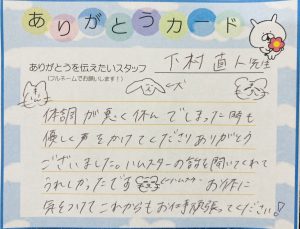 ありがとうカード
ありがとうを伝えたいスタッフ
(フルネームでお願いします!)
下村 直人 先生
体調が悪く休んでしまった時も
優しく声をかけてくださりありがとう
ございました。ハムスターの話を聞いてくれて
うれしかったです ←ハムスター お体に
気をつけてこれからもお仕事頑張ってください!